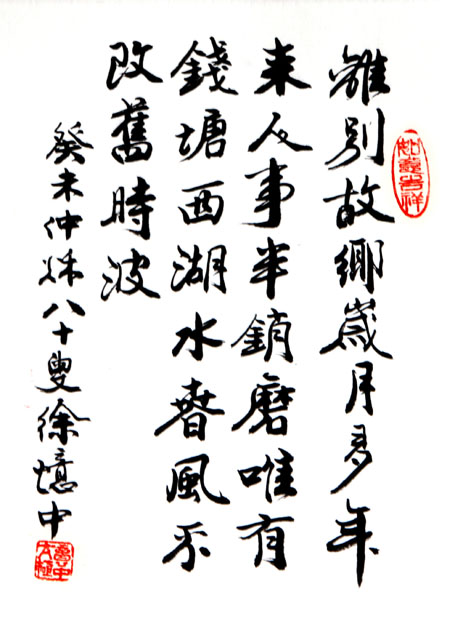 如意吉祥
離別故鄉歲月多年
来人事半銷磨唯有
錢塘西湖水春風不
改舊時波
癸未仲秋八十叟徐憶中